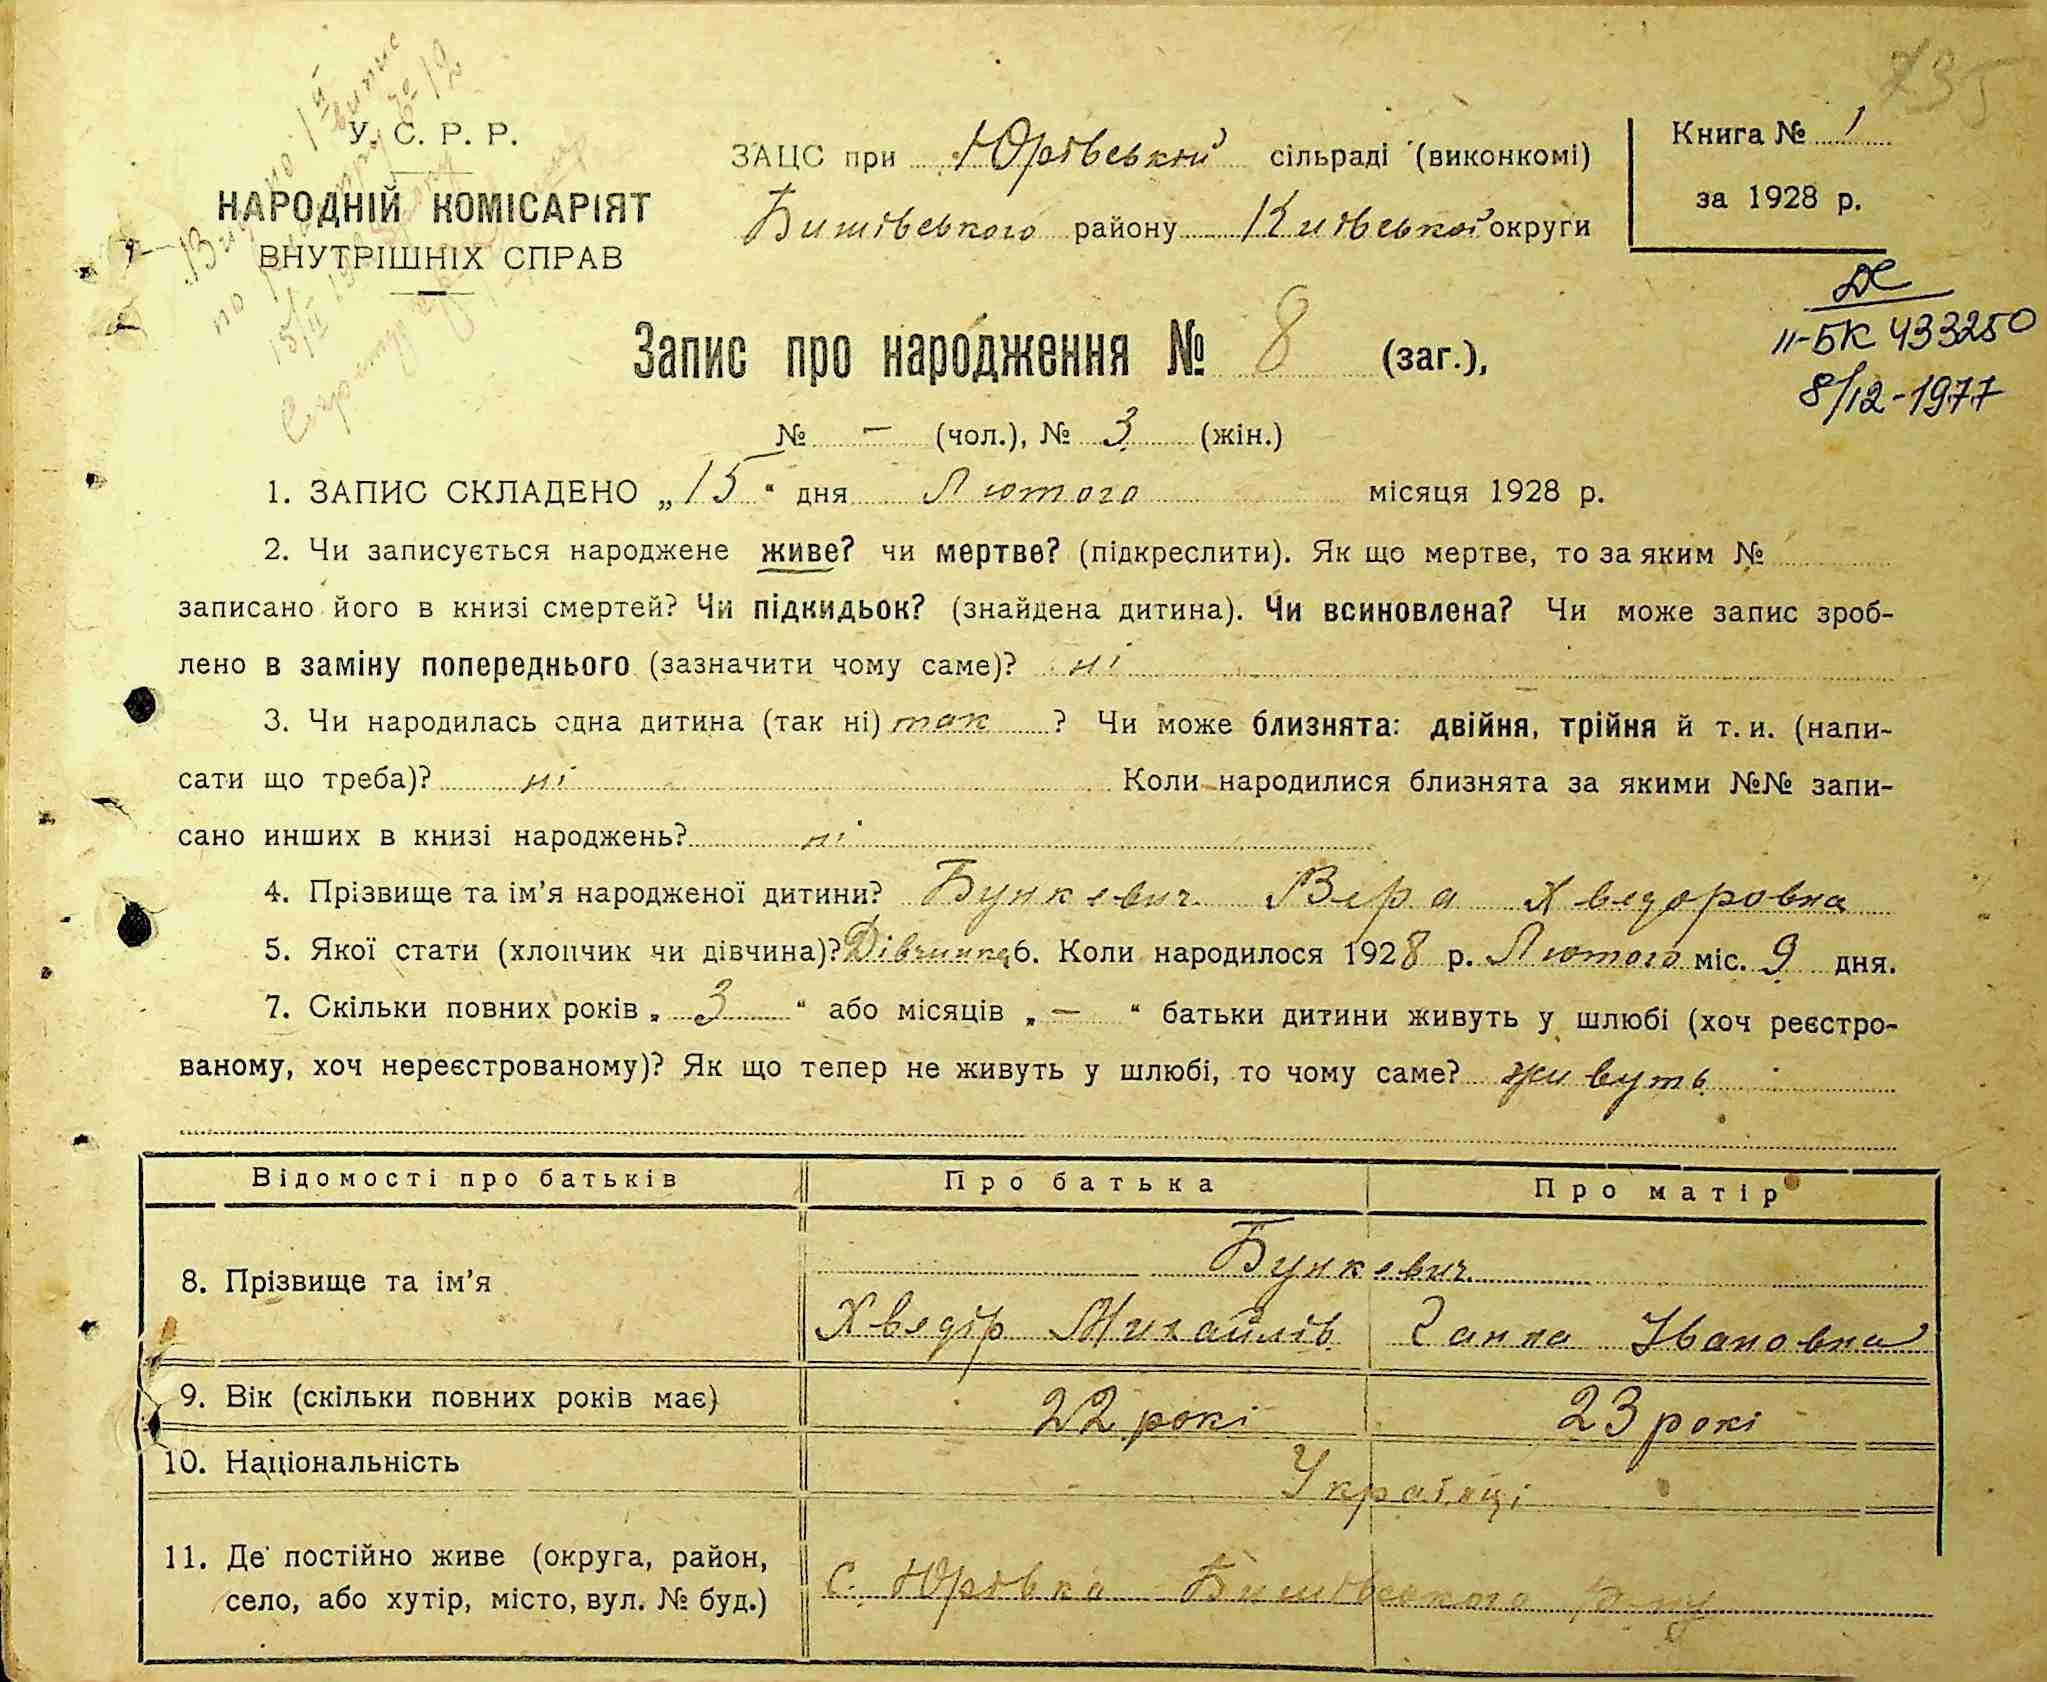 735
У. С. Р. Р.
НАРОДНІЙ КОМІСАРІЯТ
ВНУТРІШНІХ СПРАВ
ЗАЦС при Юрівській сільраді (виконкомі)
Бишівського району Київської округи
Книга № 1
за 1928 р.
ІІ-БК 433250
8/12-1977
Запис про народження № 8 (заг.),
№ — (чол.), № 3 (жін.)
1. ЗАПИС СКЛАДЕНО „15“ дня Лютого місяця 1928 р.
2. Чи записується народжене живе? чи мертве? (підкреслити). Як що мертве, то за яким №
записано його в книзі смертей? Чи підкидьок? (знайдена дитина). Чи всиновлена? Чи може запис зроб-
лено в заміну попереднього (зазначити чому саме)? ні
3. Чи народилась одна дитина (так ні) так ? Чи може близнята: двійня, трійня й т. и. (напи-
сати що треба)? ні Коли народилися близнята за якими №№ запи-
сано инших в книзі народжень? ні
4. Прізвище та ім’я народженої дитини? Бункевич Вера Хведоровна
5. Якої стати (хлопчик чи дівчина)? Дівчинка 6. Коли народилося 1928 р. Лютого міс. 9 дня.
7. Скільки повних років „ 3 “ або місяців „ — “ батьки дитини живуть у шлюбі (хоч реєстро-
ваному, хоч нереєстрованому)? Як що тепер не живуть у шлюбі, то чому саме? живуть
Відомості про батьків Про батька Про матір
8. Прізвище та ім’я Бункевич
Хведір Михайлів Ганна Івановна
9. Вік (скільки повних років має) 22 рокі 23 рокі
10. Національність Українці
11. Де постійно живе (округа, район,
село, або хутір, місто, вул. № буд.) с. Юрівка Бишівського р-ну